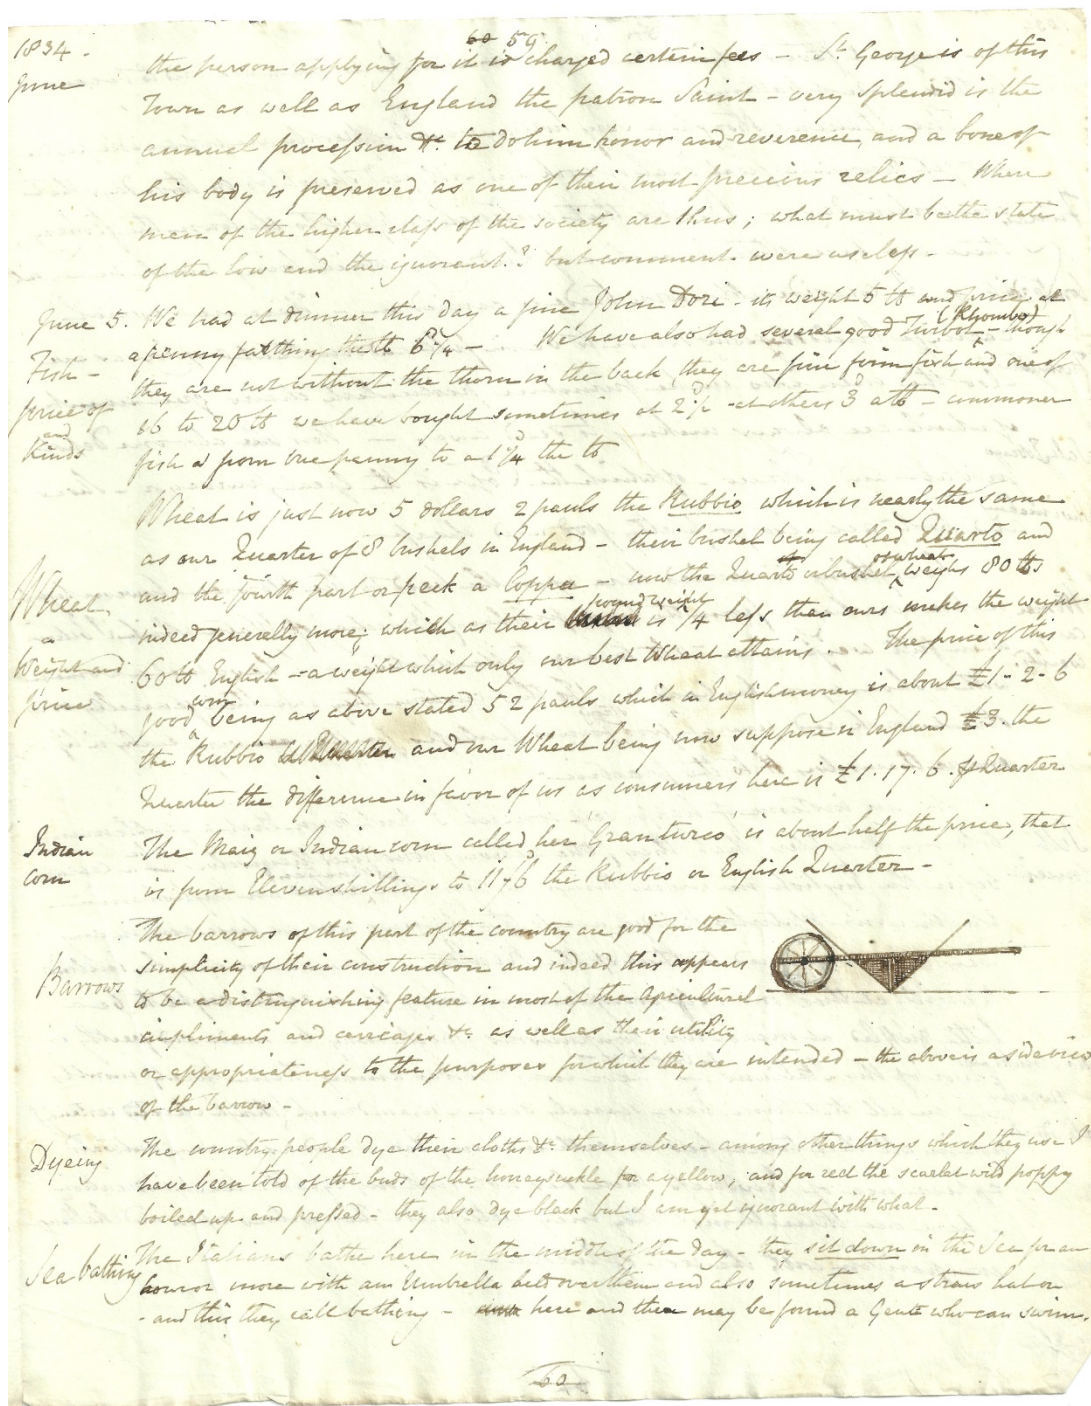 1834.
June
60 59.
the person applying for it is charged certain fees - St. George is of this
Town as well as England the patron Saint - very splendid is the
annual procession &c. to do him honor and reverence, and a bone of
his body is preserved as one of their most precious relics - When
men of the higher class of the society are thus; what must be the state
of the low and the ignorant.? but comment were useless.
June 5. We had at dinner this day a fine John Dori - its weight 5 lb and price at
a penny farthing the lb 6d 1/4 - We have also had several good Turbot (Rhombo) - though
Fish -
price of
and
Kinds
they are not without the thorn in the back, they are fine firm fish and one of
16 to 20 lb we have bought sometimes at 2d 1/2 - at others 3d a lb - commoner
fish from one penny to a 1d 1/4 the lb
Wheat is just now 5 dollars 2 pauls the Rubbio which is nearly the same
as our Quarter of 8 bushels in England - their bushel being called Quarto and
and the fourth part or peck a Coppa - now the Quarto or bushel of wheat weighs 80 lbs
Wheat,
Weight and
price
indeed generally more; which as their pound weight is 1/4 less than ours makes the weight
60 lb English - a weight which only our best Wheat attains. The price of this
good corn being as above stated 52 pauls which in English money is about £1-2-6
the Rubbio and our Wheat being now suppose in England £3. the
Quarter the difference in favor of us as consumers here is £1.17.6. Quarter
Indian
corn
The Maiz or Indian corn called her 'Granturco' is about half the price, that
is from Eleven shillings to 11/6d the Rubbio or English Quarter -
Barrows
The barrows of this part of the country are good for the
simplicity of their construction and indeed this appears
to be a distinguishing feature in most of the Agricultural
impliments and carriages &c. as well as their utility
or appropriateness to the purposes for which they are intended - the above is a side view
of the barrow -
Dyeing
The country people dye their cloths &c. themselves - among other things which they use I
have been told of the buds of the honeysuckle for a yellow, and for red the scarlet wild poppy
boiled up and pressed - they also dye black but I am yet ignorant with what.
Sea bathing
The Italians bathe here in the middle of the day - they sit down in the Sea for an
hour or more with an Umbrella held over them and also sometimes a straw hat on
- and this they call bathing - here and there may be found a Gent who can swim.
60